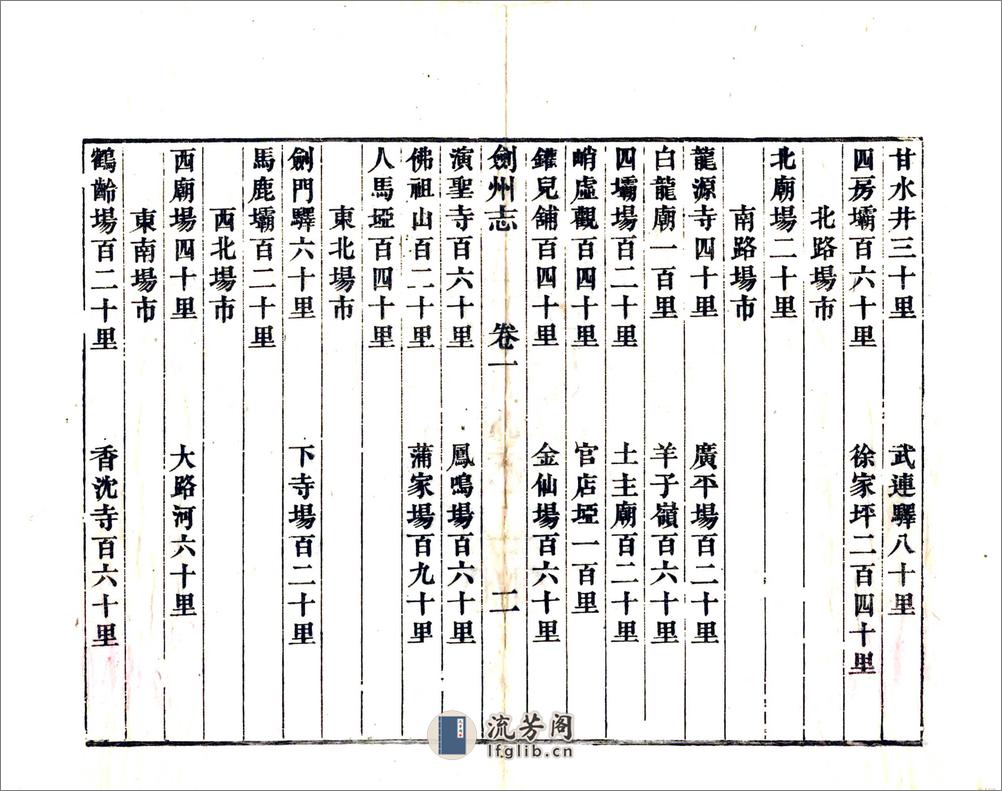 甘水井三十里　武連驛八十里
四房壩百六十里　徐家坪二百四十里
北路場市
北廟場二十里
南路場市
龍源寺四十里　廣平場百二十里
白龍廟一百里　羊子嶺百六十里
四壩場百二十里　土主廟百二十里
峭虛觀百四十里　官店埡一百里
鑵兒舖百四十里　金仙場百六十里
劍州志　卷一　二
演聖寺百六十里　鳳鳴場百六十里
佛祖山百二十里　蒲家場百九十里
人馬埡百四十里
東北場市
劍門驛六十里　下寺場百二十里
馬鹿壩百二十里
西北場市
西廟場四十里　大路河六十里
東南場市
鶴齡場百二十里　香沈寺百六十里
流芳阁
lfglib.cn